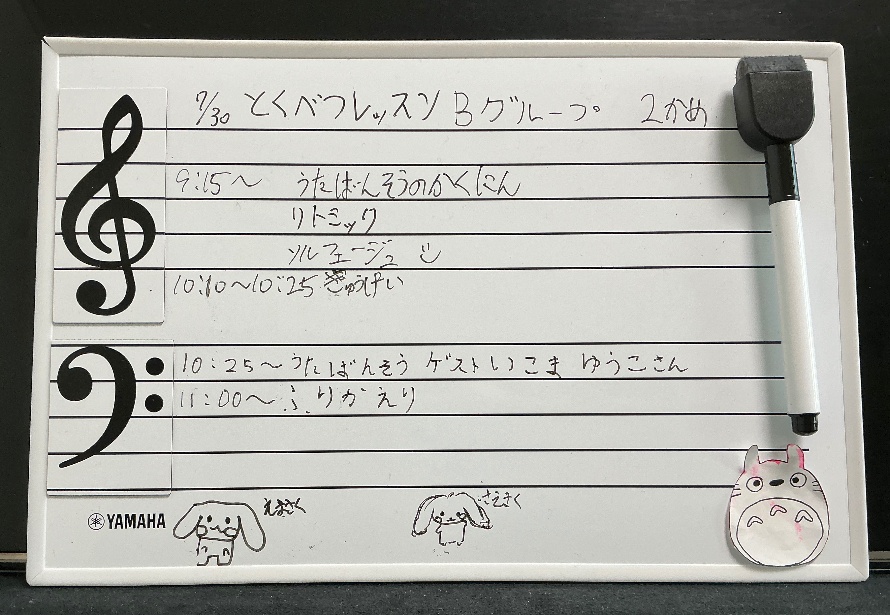 7/30 とくべつレッスン Bグループ 2かめ
9:15〜 うたばんそうのかくにん
リトミック
ソルフェージュ
10:10〜10:25 きゅうけい
10:25〜うたばんそう ゲストいこま ゆうこさん
11:00〜ふりかえり
YAMAHA
えまさく
さえさく